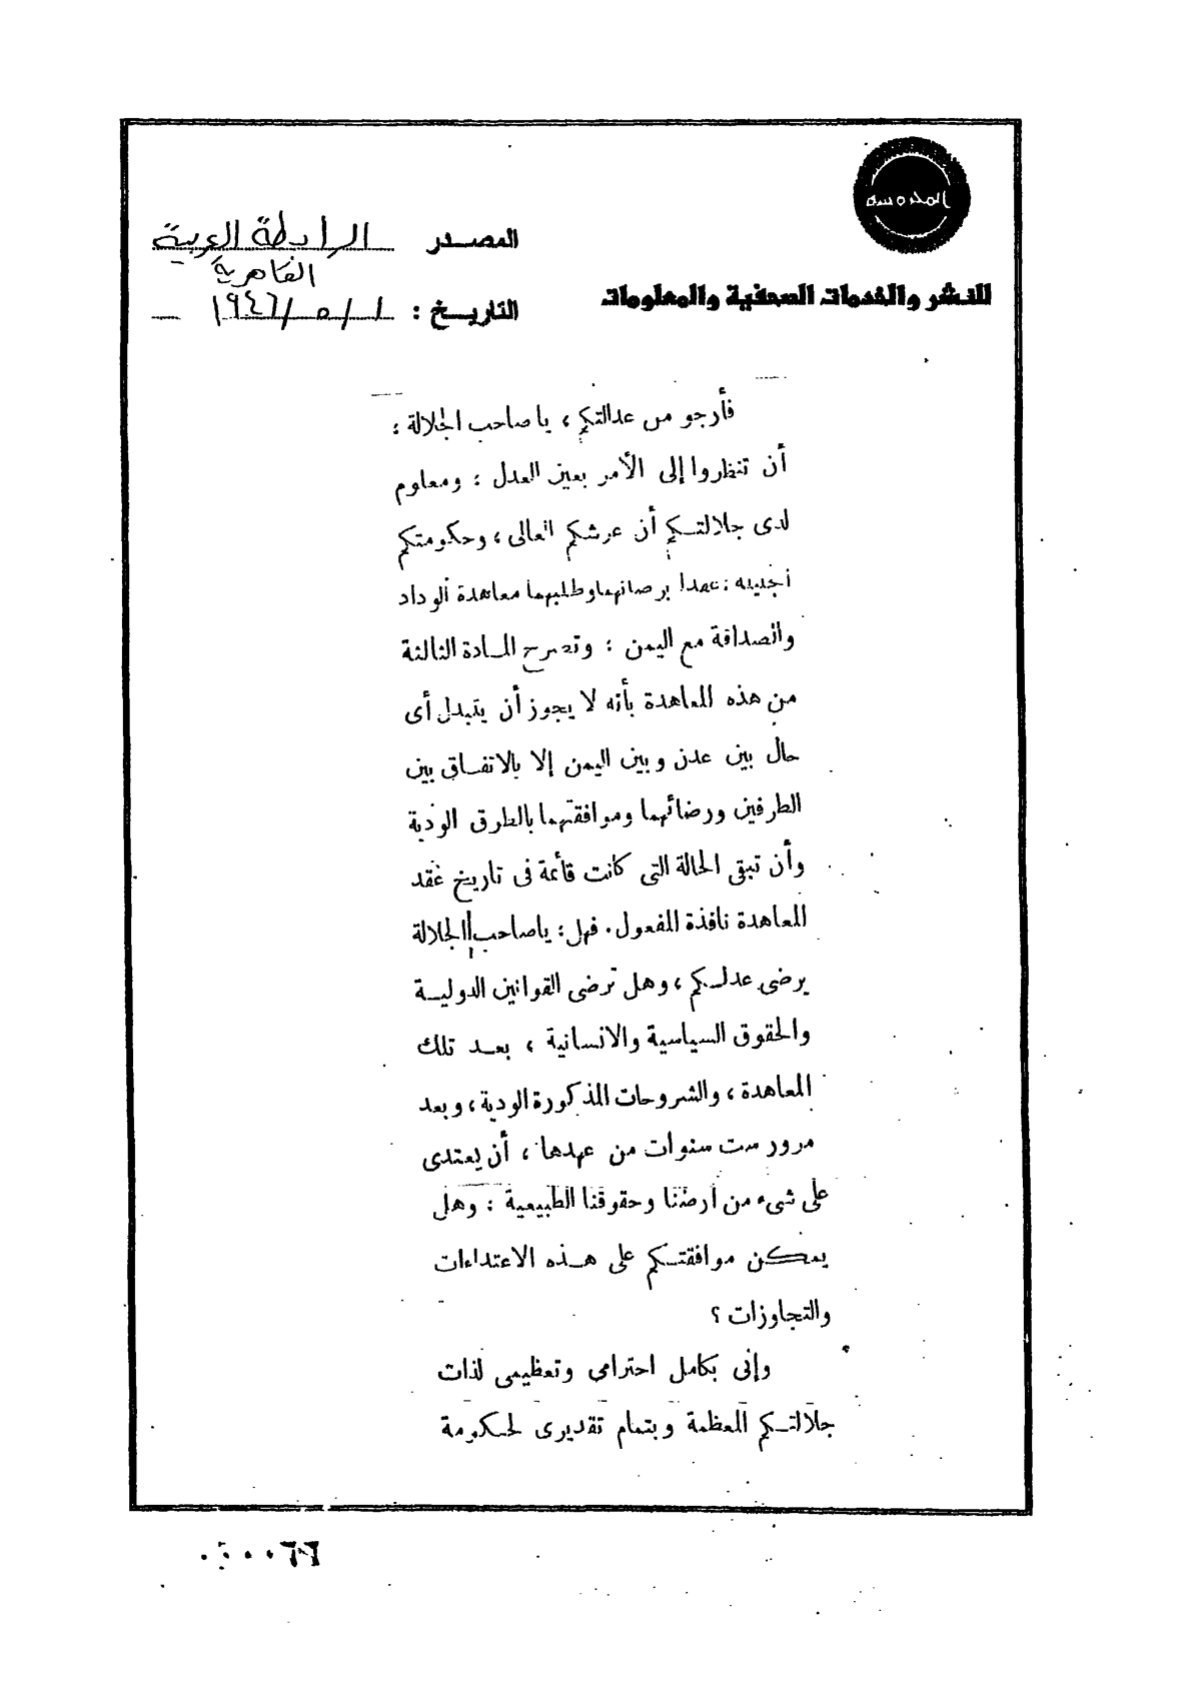 المحروسة
للنشر والخدمات الصحفية والمعلومات
المصدر الرابطة العربية
القاهرية
التاريخ : ١ / ٥ / ١٩٤٦
فأرجو من عدالتكم ، يا صاحب الجلالة :
أن تنظروا إلى الأمر بعين العدل : ومعلوم
لدى جلالتكم أن عرشكم العالى ، وحكومتكم
برضائهما وطلبهما معاهدة الوداد
والصداقة مع اليمن : وتصرح المادة الثالثة
من هذه المعاهدة بأنه لا يجوز أن يتبدل أى
حال بين عدن وبين اليمن إلا بالاتفاق بين
الطرفين ورضائهما وموافقتهما بالطرق الودية
وأن تبقى الحالة التى كانت قائمة فى تاريخ عقد
المعاهدة نافذة المفعول . فهل : يا صاحب الجلالة
يرضى عدلكم ، وهل ترضى القوانين الدولية
والحقوق السياسية والانسانية ، بعد تلك
المعاهدة ، والشروحات المذكورة الودية ، وبعد
مرور ست سنوات من عهدها ، أن يعتدى
على شىء من أرضنا وحقوقنا الطبيعية : وهل
يمكن موافقتكم على هذه الاعتداءات
والتجاوزات ؟
وإنى بكامل احترامى وتعظيمى لذات
جلالتكم المعظمة وبتمام تقديرى لحكومة